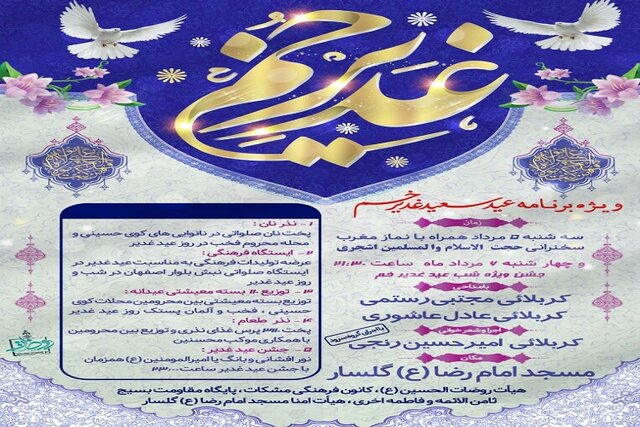 غدیر خم
ویژه برنامه عید سعید غدیر خم
زمان
سه شنبه ۵ مرداد همراه با نماز مغرب
سخنرانی حجت الاسلام والمسلمین اشجری
و چهار شنبه ۶ مرداد ماه ساعت ۲۱:۳۰
جشن ویژه شب عید غدیر خم
بامداحی
کربلائی مجتبی رستمی
کربلائی عادل عاشوری
اجرا و شعر خوانی
کربلائی امیرحسین رنجی
با اجرای گروه سرود
مکان
مسجد امام رضا (ع) گلسار
۱- نذر نان :
پخت نان صلواتی در نانوایی های کوی حسینی و
محله محروم فخب در روز عید غدیر
۲- ایستگاه فرهنگی :
عرضه تولیدات فرهنگی به مناسبت عید غدیر در
ایستگاه صلواتی نبش بلوار اصفهان در شب و
روز عید غدیر
۳- توزیع بسته معیشتی عیدانه :
توزیع بسته معیشتی بین محرومین محلات کوی
حسینی ، فخب و آلمان پستک روز عید غدیر
۴- نذر طعام :
پخت پرس غذای نذری و توزیع بین محرومین
با همکاری موکب محسنین
۵- جشن عید غدیر :
نور افشانی و بانگ یا امیرالمومنین (ع) همزمان
با جشن عید غدیر ساعت ۲۳:۰۰
هیأت روضات الحسین (ع)، کانون فرهنگی مشکات ، پایگاه مقاومت بسیج
ثامن الائمه و فاطمه اخری ، هیأت امنا مسجد امام رضا (ع) گلسار